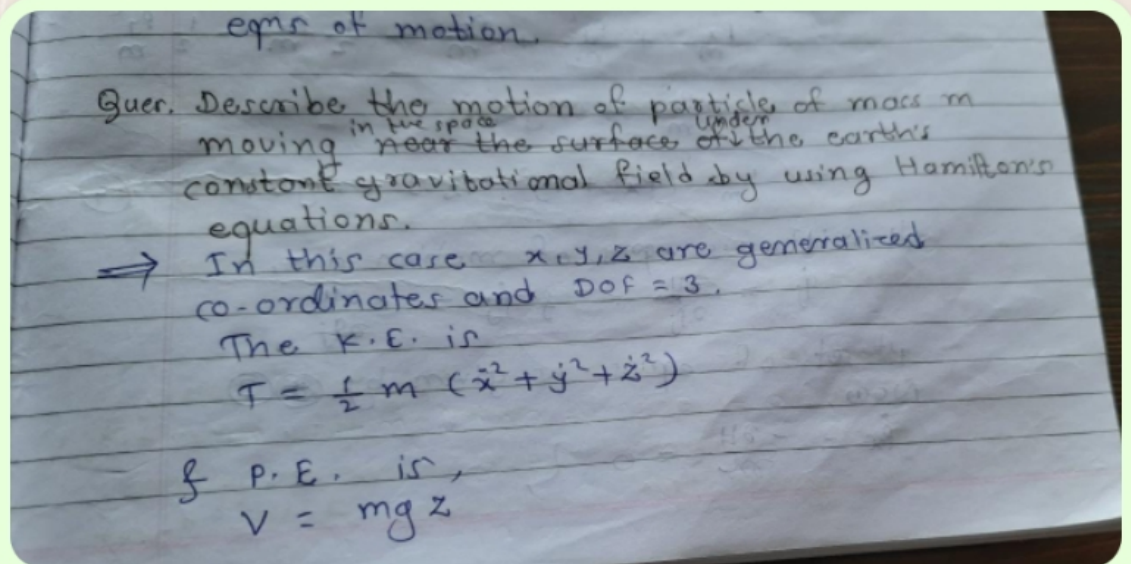 eqns of motion.
Ques. Describe the motion of particle of mass m
in the space under
moving near the surface of the earth's
constant gravitational field by using Hamilton's
equations.
⇒ In this case x, y, z are generalized
co-ordinates and DOF = 3.
The K.E. is
T = 1/2 m (ẋ² + ẏ² + ż²)
& P.E. is,
V = mgz